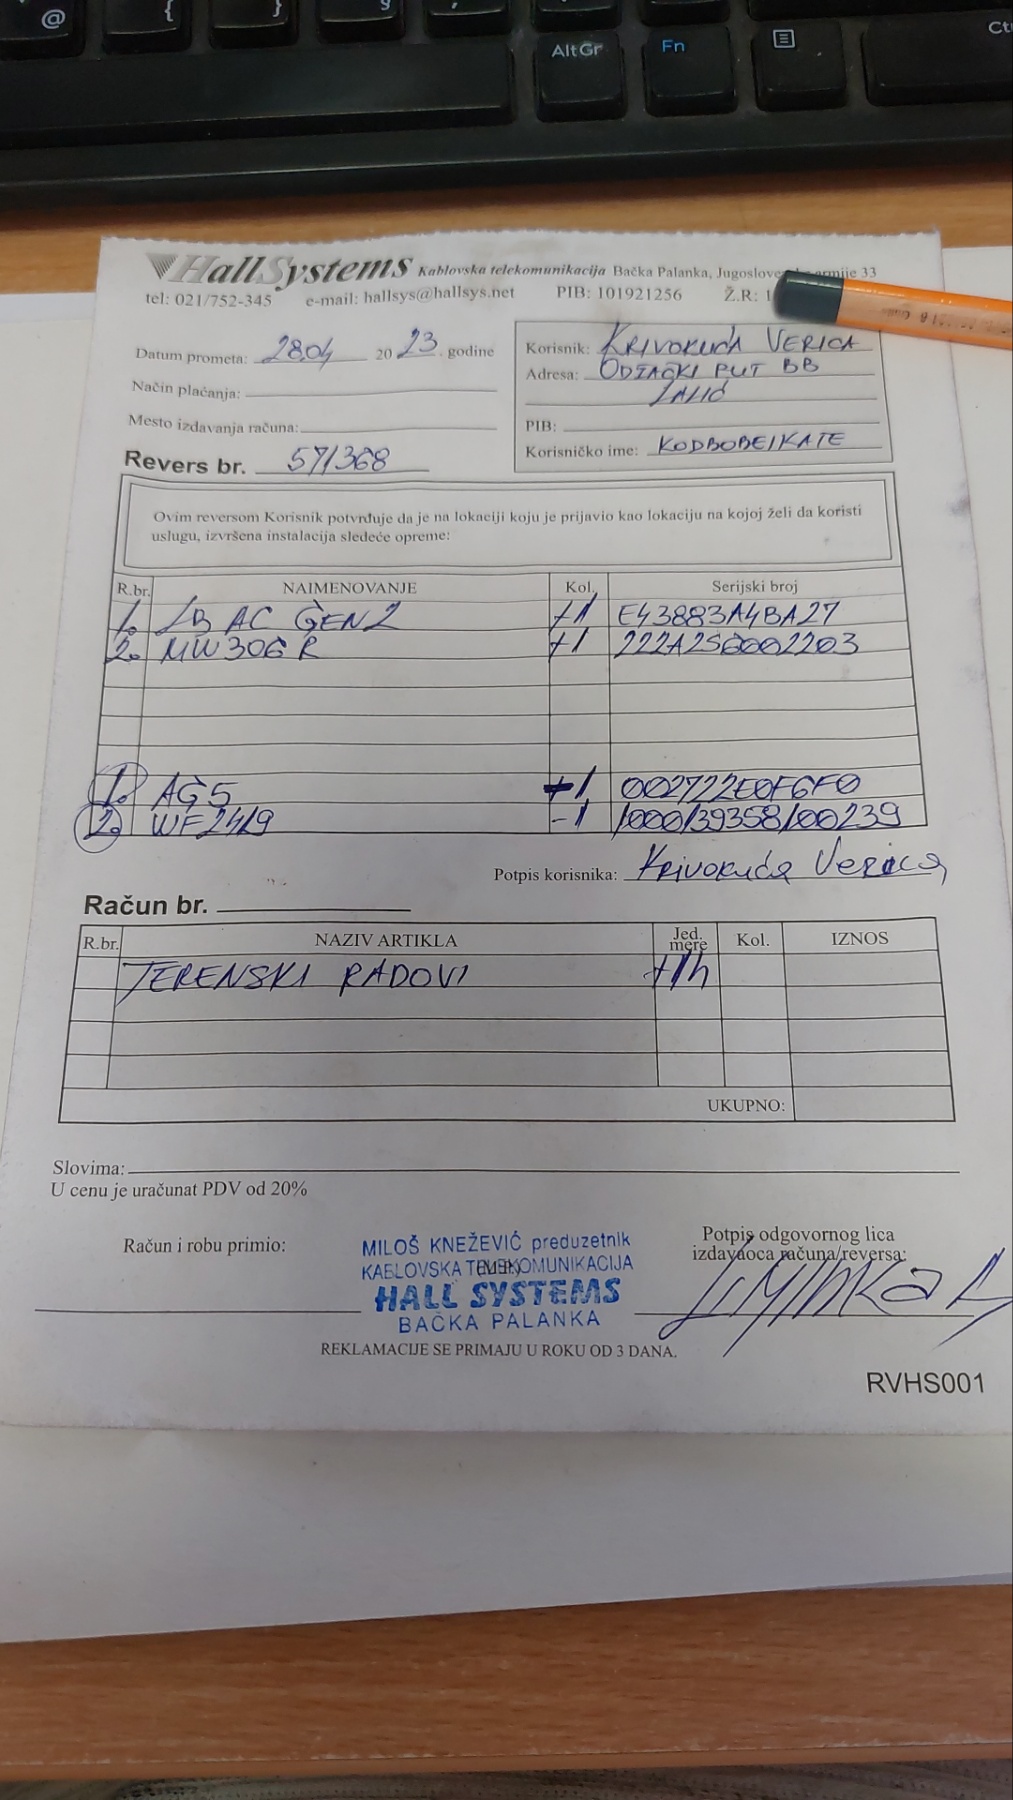 @ { } §
AltGr Fn Ct
HallSystems Kablovska telekomunikacija Bačka Palanka, 33
tel: 021/752-345 e-mail: hallsys@hallsys.net PIB: 101921256 Ž.R: 1
Datum prometa: 28.04 2023. godine
Način plaćanja:
Mesto izdavanja računa:
Revers br. 571368
Korisnik: KRIVOKUĆA VERICA
Adresa: ODŽAČKI PUT BB
LALIĆ
PIB:
Korisničko ime: KODBOBEIKATE
Ovim reversom Korisnik potvrđuje da je na lokaciji koju je prijavio kao lokaciju na kojoj želi da koristi
uslugu, izvršena instalacija sledeće opreme:
R.br. NAIMENOVANJE Kol. Serijski broj
1. LB AC GEN2 +1 E43883A4BA27
2. MW306R +1 222A2S6002203
1. AG5 +1 002722E0F6F0
2. WF2419 -1 1000/39358/00239
Potpis korisnika: Krivokuća Verica
Račun br.
R.br. NAZIV ARTIKLA Jed. mere Kol. IZNOS
TERENSKI RADOVI +1h
UKUPNO:
Slovima:
U cenu je uračunat PDV od 20%
Račun i robu primio:
MILOŠ KNEŽEVIĆ preduzetnik
KABLOVSKA TELEKOMUNIKACIJA
HALL SYSTEMS
BAČKA PALANKA
(M.P.)
Potpis odgovornog lica
izdavaoca računa/reversa:
REKLAMACIJE SE PRIMAJU U ROKU OD 3 DANA.
RVHS001